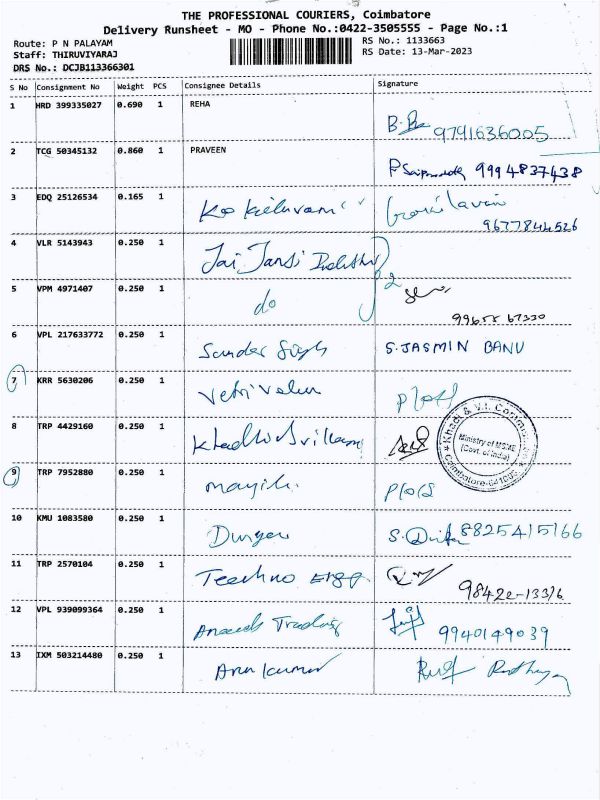 THE PROFESSIONAL COURIERS, Coimbatore
Delivery Runsheet - MO - Phone No.:0422-3505555 - Page No.:1
Route: P N PALAYAM
RS No.: 1133663
Staff: THIRUVIYARAJ
RS Date: 13-Mar-2023
DRS No.: DCJB113366301
S No Consignment No Weight PCS Consignee Details Signature
1 HRD 399335027 0.690 1 REHA
9791636005
2 TCG 50345132 0.860 1 PRAVEEN
9994837438
3 EDQ 25126534 0.165 1
9677844526
4 VLR 5143943 0.250 1 Jai
5 VPM 4971407 0.250 1 do
67330
6 VPL 217633772 0.250 1 Sundar Singh S.JASMIN BANU
7 KRR 5630206 0.250 1 Vetrivelan
8 TRP 4429160 0.250 1
Khadi & V.I. Commission
Ministry of MSME
(Govt. of India)
Coimbatore-641002
9 TRP 7952880 0.250 1
10 KMU 1083580 0.250 1 8825415166
11 TRP 2570104 0.250 1 Teechno Engg
98422-13316
12 VPL 939099364 0.250 1 Anand Trading
9940149039
13 IXM 503214480 0.250 1 Arun kumar